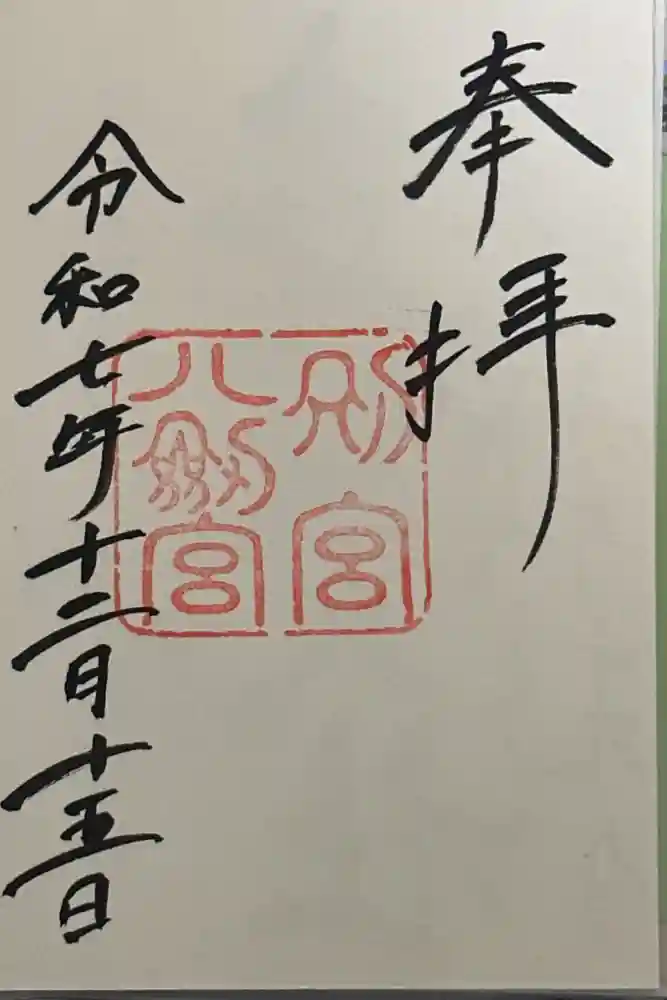 奉拝
別宮
八剱宮
令和七年十二月十五日